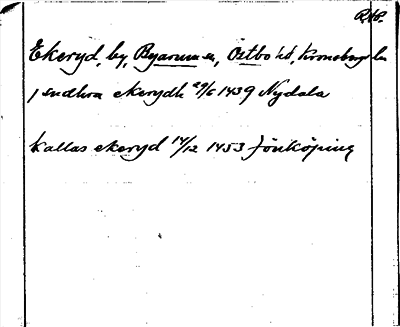 RAP.
Ekeryd, by, Byarums sn, Östbo hd, Kronobergs län
j sudhra ekerydh 29/6 1439 Nydala
kallas ekeryd 14/12 1453 Jönköping